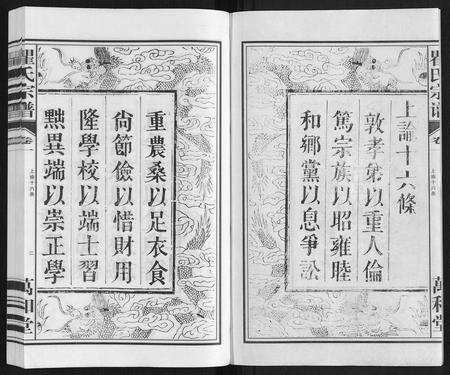 瞿氏宗谱
卷
上諭十六條
萬和堂
上諭十六條
敦孝弟以重人倫
篤宗族以昭雍睦
和鄉黨以息爭訟
重農桑以足衣食
尚節儉以惜財用
隆學校以端士習
黜異端以崇正學
瞿氏宗譜
卷
上諭十六條
二
萬和堂